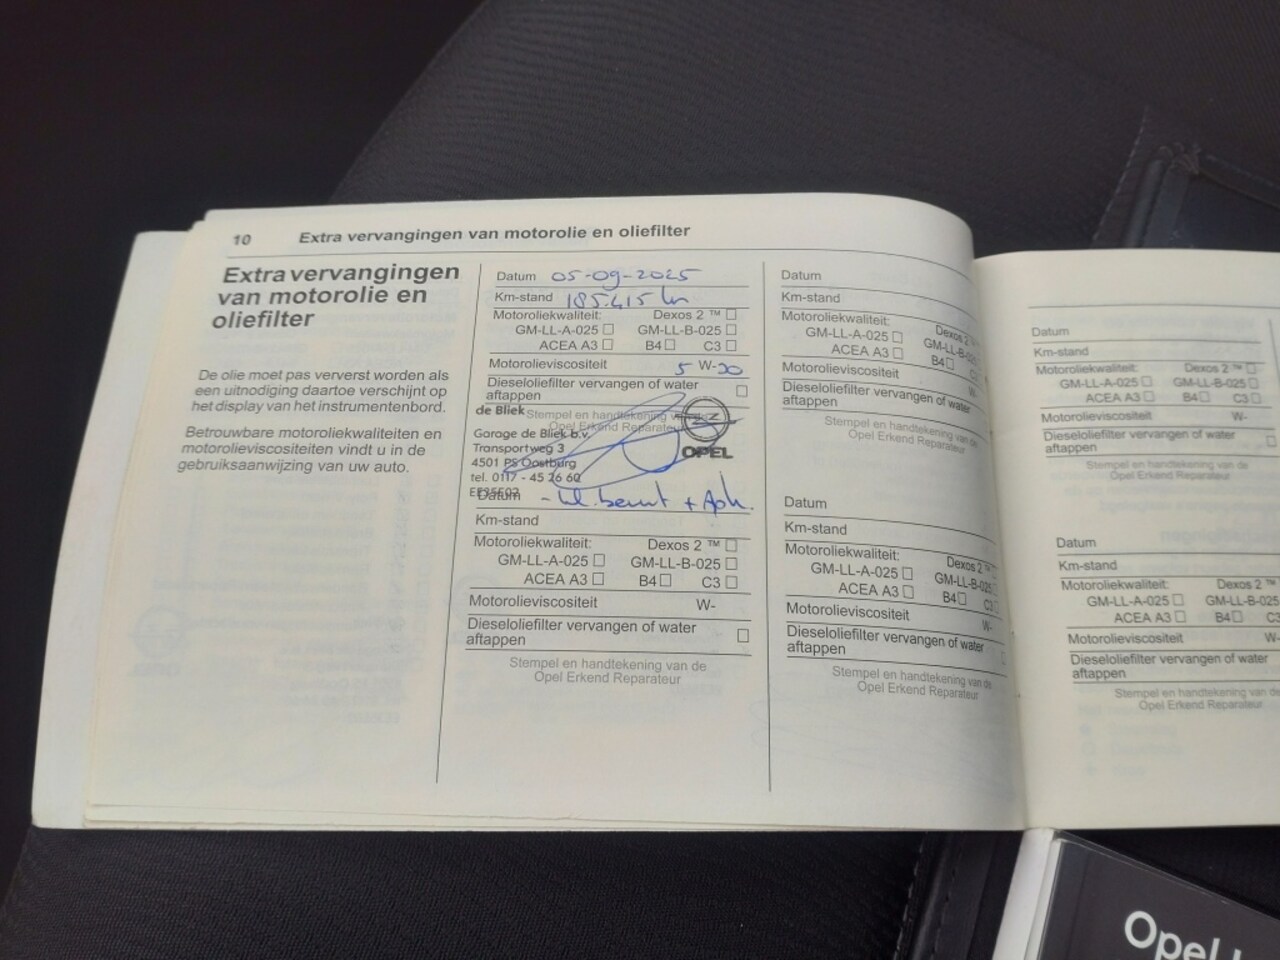 10 Extra vervangingen van motorolie en oliefilter
Extra vervangingen
van motorolie en
oliefilter
De olie moet pas ververst worden als
een uitnodiging daartoe verschijnt op
het display van het instrumentenbord.
Betrouwbare motoroliekwaliteiten en
motorolieviscositeiten vindt u in de
gebruiksaanwijzing van uw auto.
Datum 05-09-2025
Km-stand 185.415 km
Motoroliekwaliteit: Dexos 2 ™ ☐
GM-LL-A-025 ☐ GM-LL-B-025 ☐
ACEA A3 ☐ B4 ☐ C3 ☐
Motorolieviscositeit 5 W-30
Dieseloliefilter vervangen of water
aftappen ☐
Stempel en handtekening van de
Opel Erkend Reparateur
de Bliek
Garage de Bliek b.v.
Transportweg 3
4501 PS Oostburg
tel. 0117 - 45 26 60
OPEL
Datum
Km-stand
Motoroliekwaliteit: Dexos 2 ™ ☐
GM-LL-A-025 ☐ GM-LL-B-025 ☐
ACEA A3 ☐ B4 ☐ C3 ☐
Motorolieviscositeit W-
Dieseloliefilter vervangen of water
aftappen ☐
Stempel en handtekening van de
Opel Erkend Reparateur
Datum
Km-stand
Motoroliekwaliteit: Dexos 2
GM-LL-A-025 ☐ GM-LL-B-025
ACEA A3 ☐ B4 ☐ C3
Motorolieviscositeit W-
Dieseloliefilter vervangen of water
aftappen
Stempel en handtekening van de
Opel Erkend Reparateur
Datum
Km-stand
Motoroliekwaliteit: Dexos 2 ™
GM-LL-A-025 ☐ GM-LL-B-025
ACEA A3 ☐ B4 ☐ C3
Motorolieviscositeit W-
Dieseloliefilter vervangen of water
aftappen
Stempel en handtekening van de
Opel Erkend Reparateur
Datum
Km-stand
Motoroliekwaliteit: Dexos 2 ™ ☐
GM-LL-A-025 ☐ GM-LL-B-025 ☐
ACEA A3 ☐ B4 ☐ C3 ☐
Motorolieviscositeit W-
Dieseloliefilter vervangen of water
aftappen ☐
Stempel en handtekening van de
Opel Erkend Reparateur
Datum
Km-stand
Motoroliekwaliteit: Dexos 2 ™
GM-LL-A-025 ☐ GM-LL-B-025
ACEA A3 ☐ B4 ☐ C3
Motorolieviscositeit W-
Dieseloliefilter vervangen of water
aftappen
Stempel en handtekening van de
Opel Erkend Reparateur
Opel